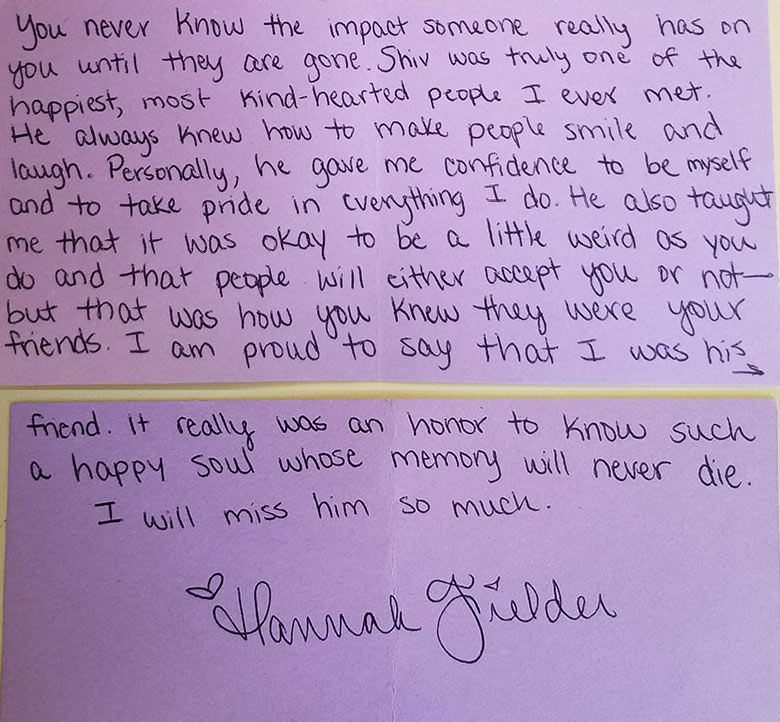 You never know the impact someone really has on
you until they are gone. Shiv was truly one of the
happiest, most kind-hearted people I ever met.
He always knew how to make people smile and
laugh. Personally, he gave me confidence to be myself
and to take pride in everything I do. He also taught
me that it was okay to be a little weird as you
do and that people will either accept you or not—
but that was how you knew they were your
friends. I am proud to say that I was his →
friend. it really was an honor to know such
a happy soul whose memory will never die.
I will miss him so much.
♡ Hannah Fielder